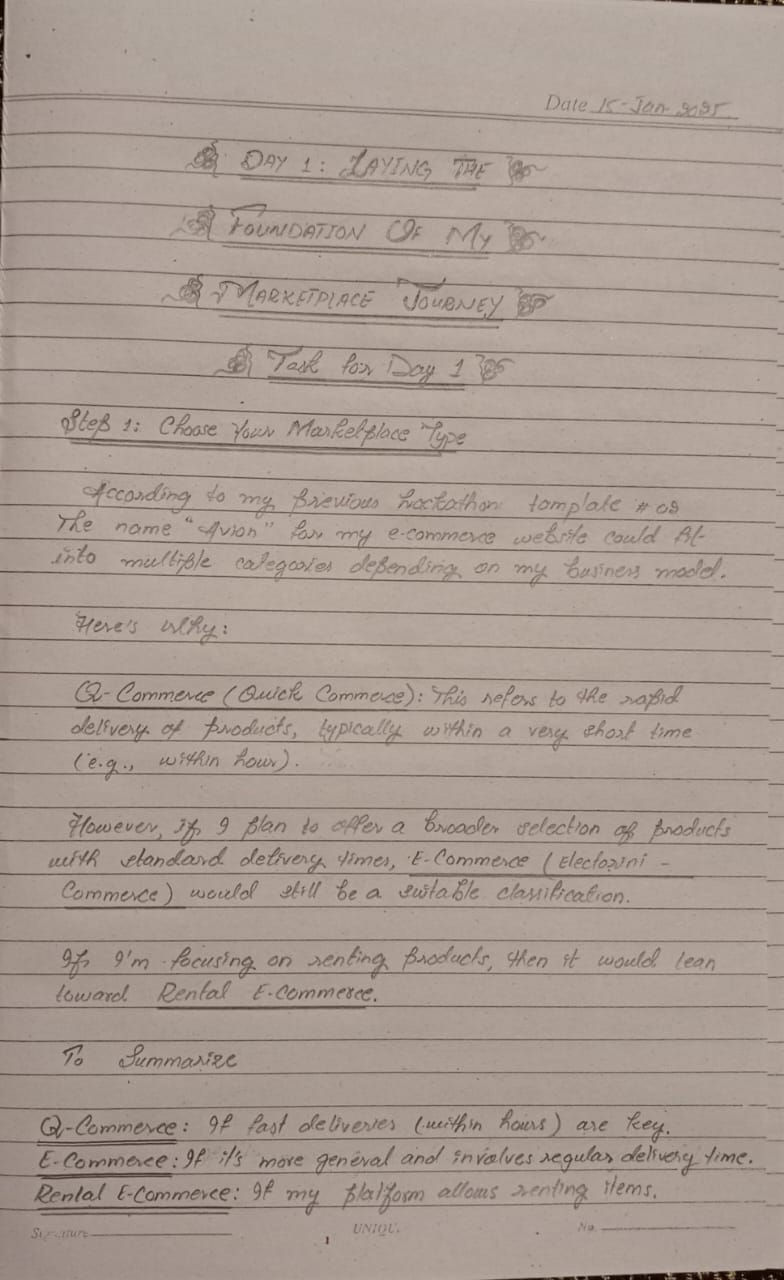 Date 15-Jan 2025
DAY 1: LAYING THE
FOUNDATION OF MY
MARKETPLACE JOURNEY
Task for Day 1
Step 1: Choose Your Marketplace Type
According to my previous hackathon tamplate # 08
The name "Avion" for my e-commerce website could fit
into multiple categories depending on my business model.
Here's why:
Q-Commerce (Quick Commerce): This refers to the rapid
delivery of products, typically within a very short time
(e.g., within hour).
However, if I plan to offer a broader selection of products
with standard delivery times, E-Commerce (Electorini -
Commerce) would still be a suitable classification.
If I'm focusing on renting products, then it would lean
toward Rental E-Commerce.
To Summarize
Q-Commerce: If fast deliveries (within hours) are key.
E-Commerce: If it's more general and involves regular delivery time.
Rental E-Commerce: If my platform allows renting items.
Signature
UNIQUE
No.
1